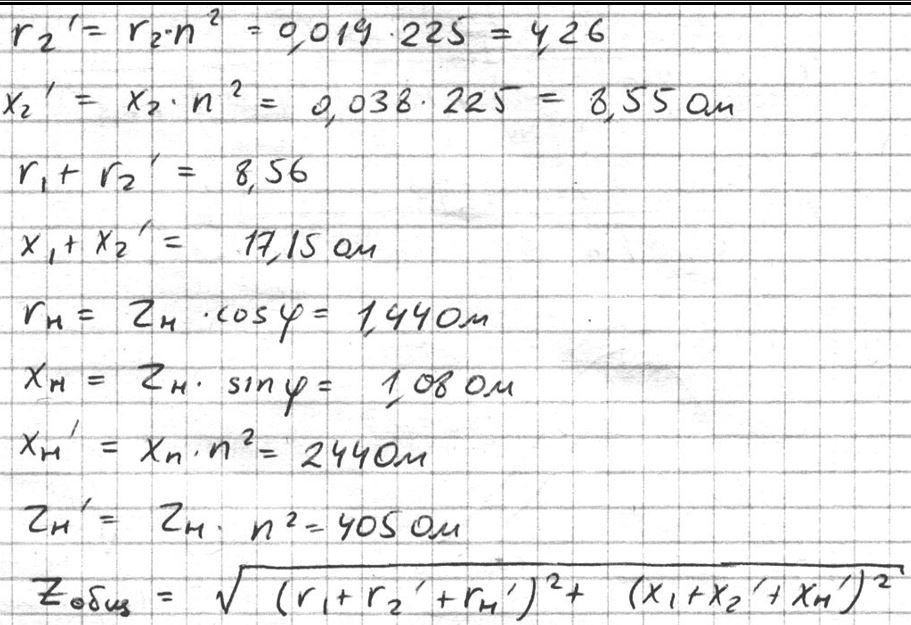 r₂' = r₂·n² = 0,019·225 = 4,26
x₂' = x₂·n² = 0,038·225 = 8,55 Ом
r₁ + r₂' = 8,56
x₁ + x₂' = 17,15 Ом
rн = Zн·cosφ = 1,44 Ом
xн = Zн·sinφ = 1,08 Ом
xн' = xn·n² = 244 Ом
Zн' = Zн·n² = 405 Ом
Zобщ = √(r₁ + r₂' + rн')² + (x₁ + x₂' + xн')²